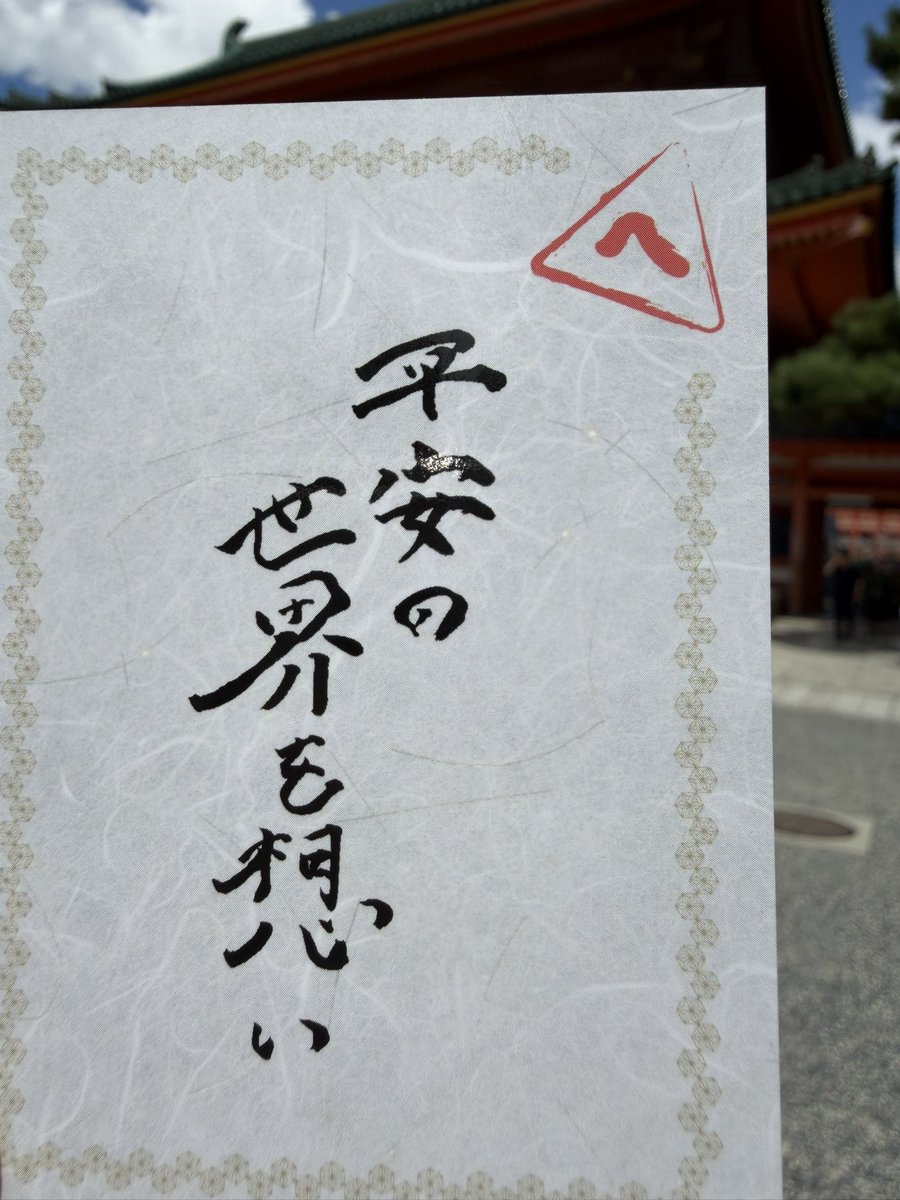 へ
平安の
世界を想い